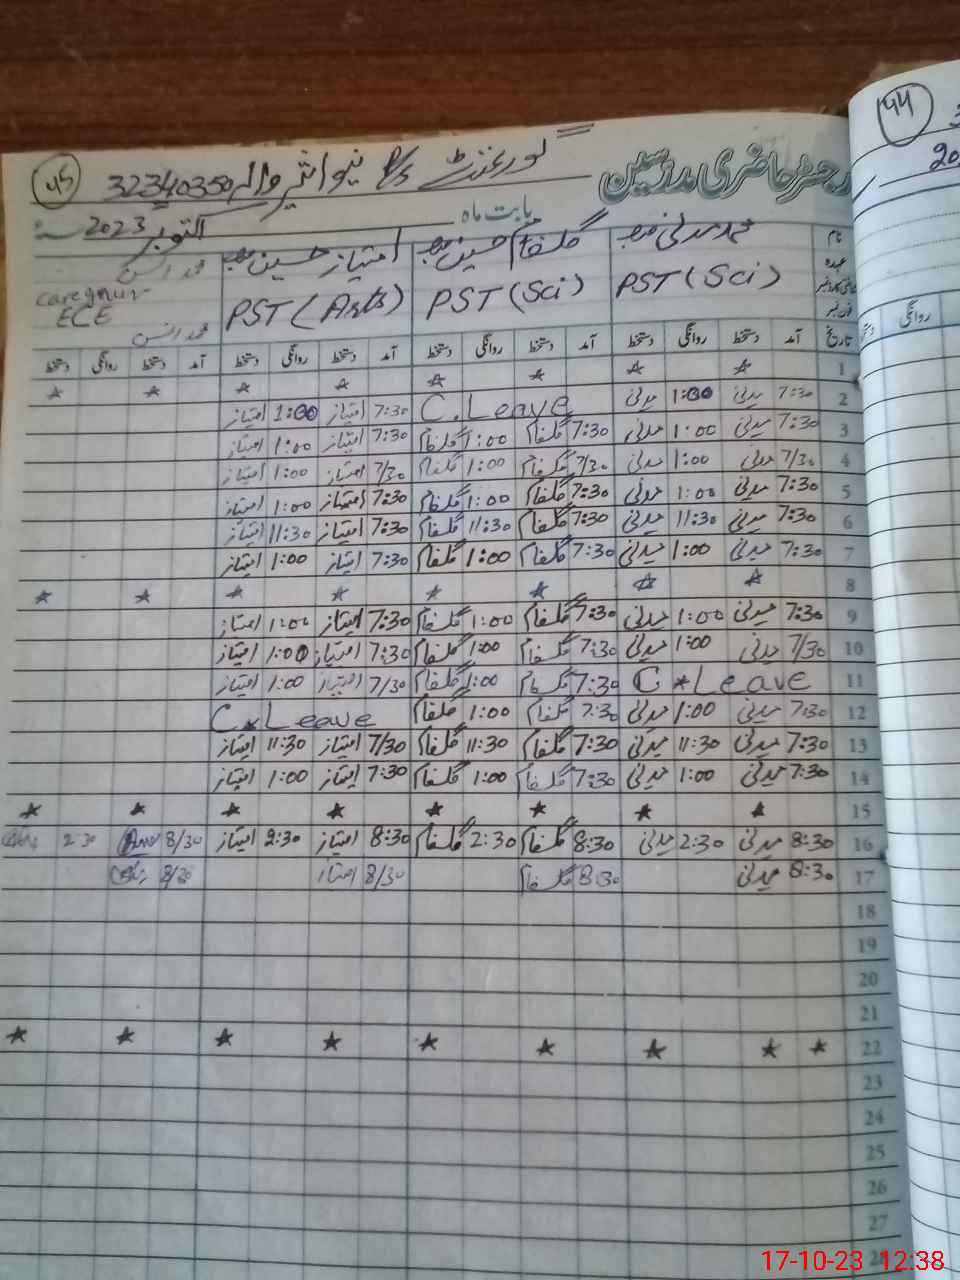 45 32240350 گورنمنٹ P/S نیو انٹیر والہ رجسٹر حاضری مدرسین
بابت ماہ اکتوبر 2023 سنہ
نام محمد مدنی گلفام حسین امتیاز حسین محمد انس
عہدہ PST (Sci) PST (Sci) PST (Arts) caregiver ECE
محمد انس
تاریخ آمد دستخط روانگی دستخط آمد دستخط روانگی دستخط آمد دستخط روانگی دستخط آمد دستخط روانگی دستخط
1 * * * * * * * *
2 7:30 مدنی 1:00 مدنی C.Leave 7:30 امتیاز 1:00 امتیاز
3 7:30 مدنی 1:00 مدنی 7:30 گلفام 1:00 گلفام 7:30 امتیاز 1:00 امتیاز
4 7/30 مدنی 1:00 مدنی 7/30 گلفام 1:00 گلفام 7/30 امتیاز 1:00 امتیاز
5 7:30 مدنی 1:00 مدنی 7:30 گلفام 1:00 گلفام 7:30 امتیاز 1:00 امتیاز
6 7:30 مدنی 11:30 مدنی 7:30 گلفام 11:30 گلفام 7:30 امتیاز 11:30 امتیاز
7 7:30 مدنی 1:00 مدنی 7:30 گلفام 1:00 گلفام 7:30 امتیاز 1:00 امتیاز
8 * * * * * * * *
9 7:30 مدنی 1:00 مدنی 7:30 گلفام 1:00 گلفام 7:30 امتیاز 1:00 امتیاز
10 7/30 مدنی 1:00 مدنی 7:30 گلفام 1:00 گلفام 7:30 امتیاز 1:00 امتیاز
11 C*Leave 7:30 گلفام 1:00 گلفام 7/30 امتیاز 1:00 امتیاز
12 7:30 مدنی 1:00 مدنی 7:30 گلفام 1:00 گلفام C*Leave
13 7:30 مدنی 11:30 مدنی 7:30 گلفام 11:30 گلفام 7/30 امتیاز 11:30 امتیاز
14 7:30 مدنی 1:00 مدنی 7:30 گلفام 1:00 گلفام 7:30 امتیاز 1:00 امتیاز
15 * * * * * * * *
16 8:30 مدنی 2:30 مدنی 8:30 گلفام 2:30 گلفام 8:30 امتیاز 2:30 امتیاز 8/30 2:30
17 8:30 مدنی 8:30 گلفام 8/30 امتیاز 8/30
18
19
20
21
22 * * * * * * * * *
23
24
25
26
27
28
44
روانگی
17-10-23 12:38